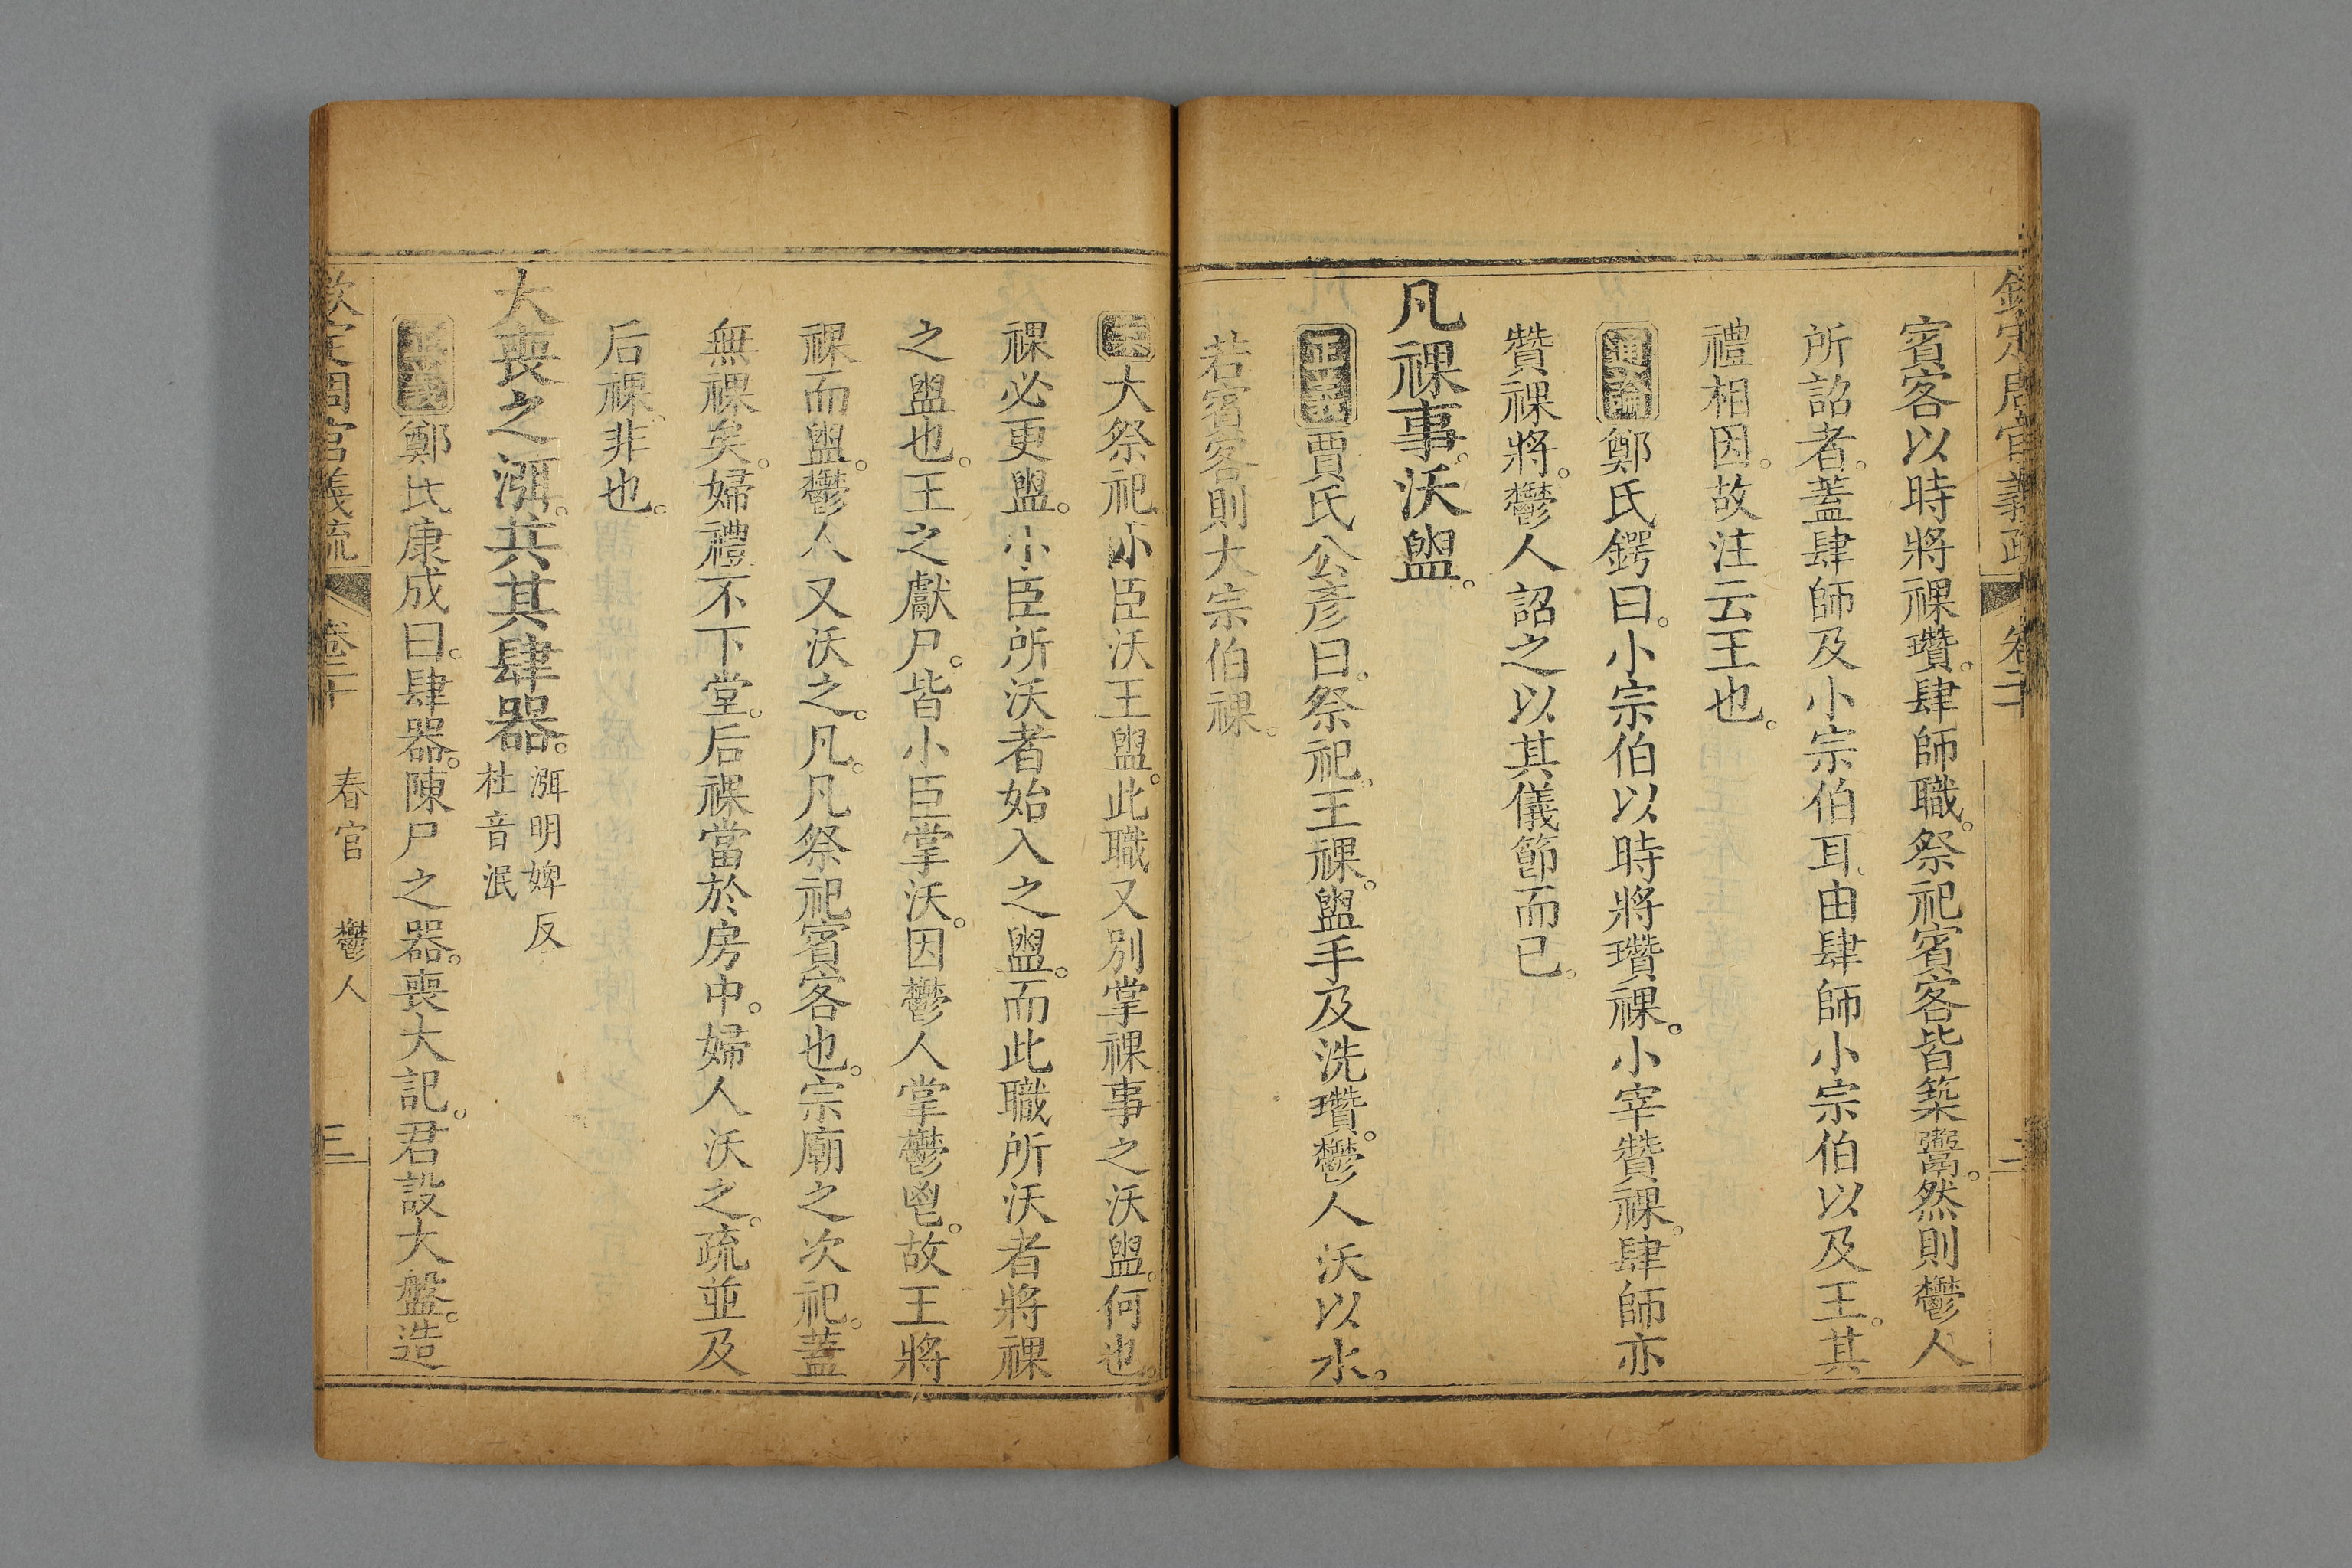 欽定周官義疏 卷二十 二
賓客以時將祼瓚。肆師職。祭祀賓客皆築鬻。然則鬱人
所詔者。蓋肆師及小宗伯耳。由肆師小宗伯以及王。其
禮相因。故注云王也。
通論鄭氏鍔曰。小宗伯以時將瓚祼。小宰贊祼。肆師亦
贊祼將。鬱人詔之以其儀節而已。
凡祼事。沃盥。
正義賈氏公彥曰。祭祀。王祼。盥手及洗瓚。鬱人沃以水。
若賓客則大宗伯祼。
大祭祀。小臣沃王盥。此職又別掌祼事之沃盥。何也。
祼必更盥。小臣所沃者始入之盥。而此職所沃者將祼
之盥也。王之獻尸。皆小臣掌沃。因鬱人掌鬱鬯。故王將
祼而盥。鬱人又沃之。凡。凡祭祀賓客也。宗廟之次祀。蓋
無祼矣。婦禮不下堂。后祼當於房中。婦人沃之。疏並及
后祼。非也。
大喪之渳。共其肆器。渳明婢反
杜音泯
正義鄭氏康成曰。肆器。陳尸之器。喪大記。君設大盤。造
欽定周官義疏 卷二十 春官 鬱人 三